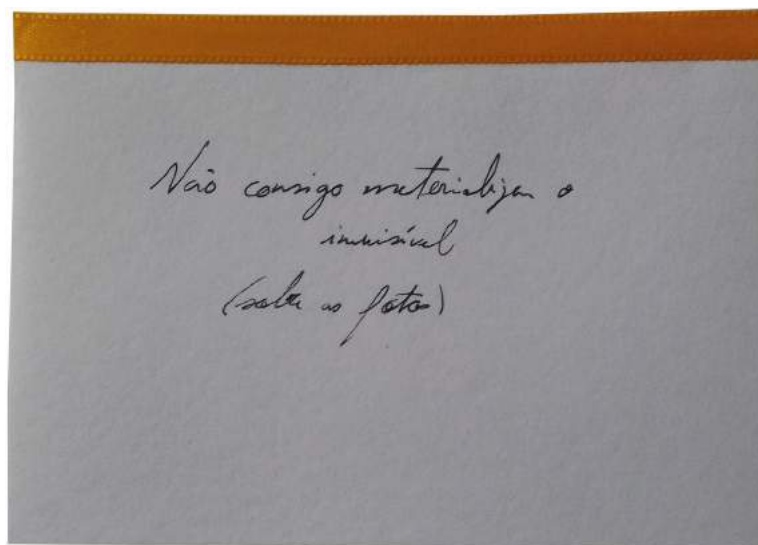 Não consigo materializar o
invisível
(sobre as fotos)